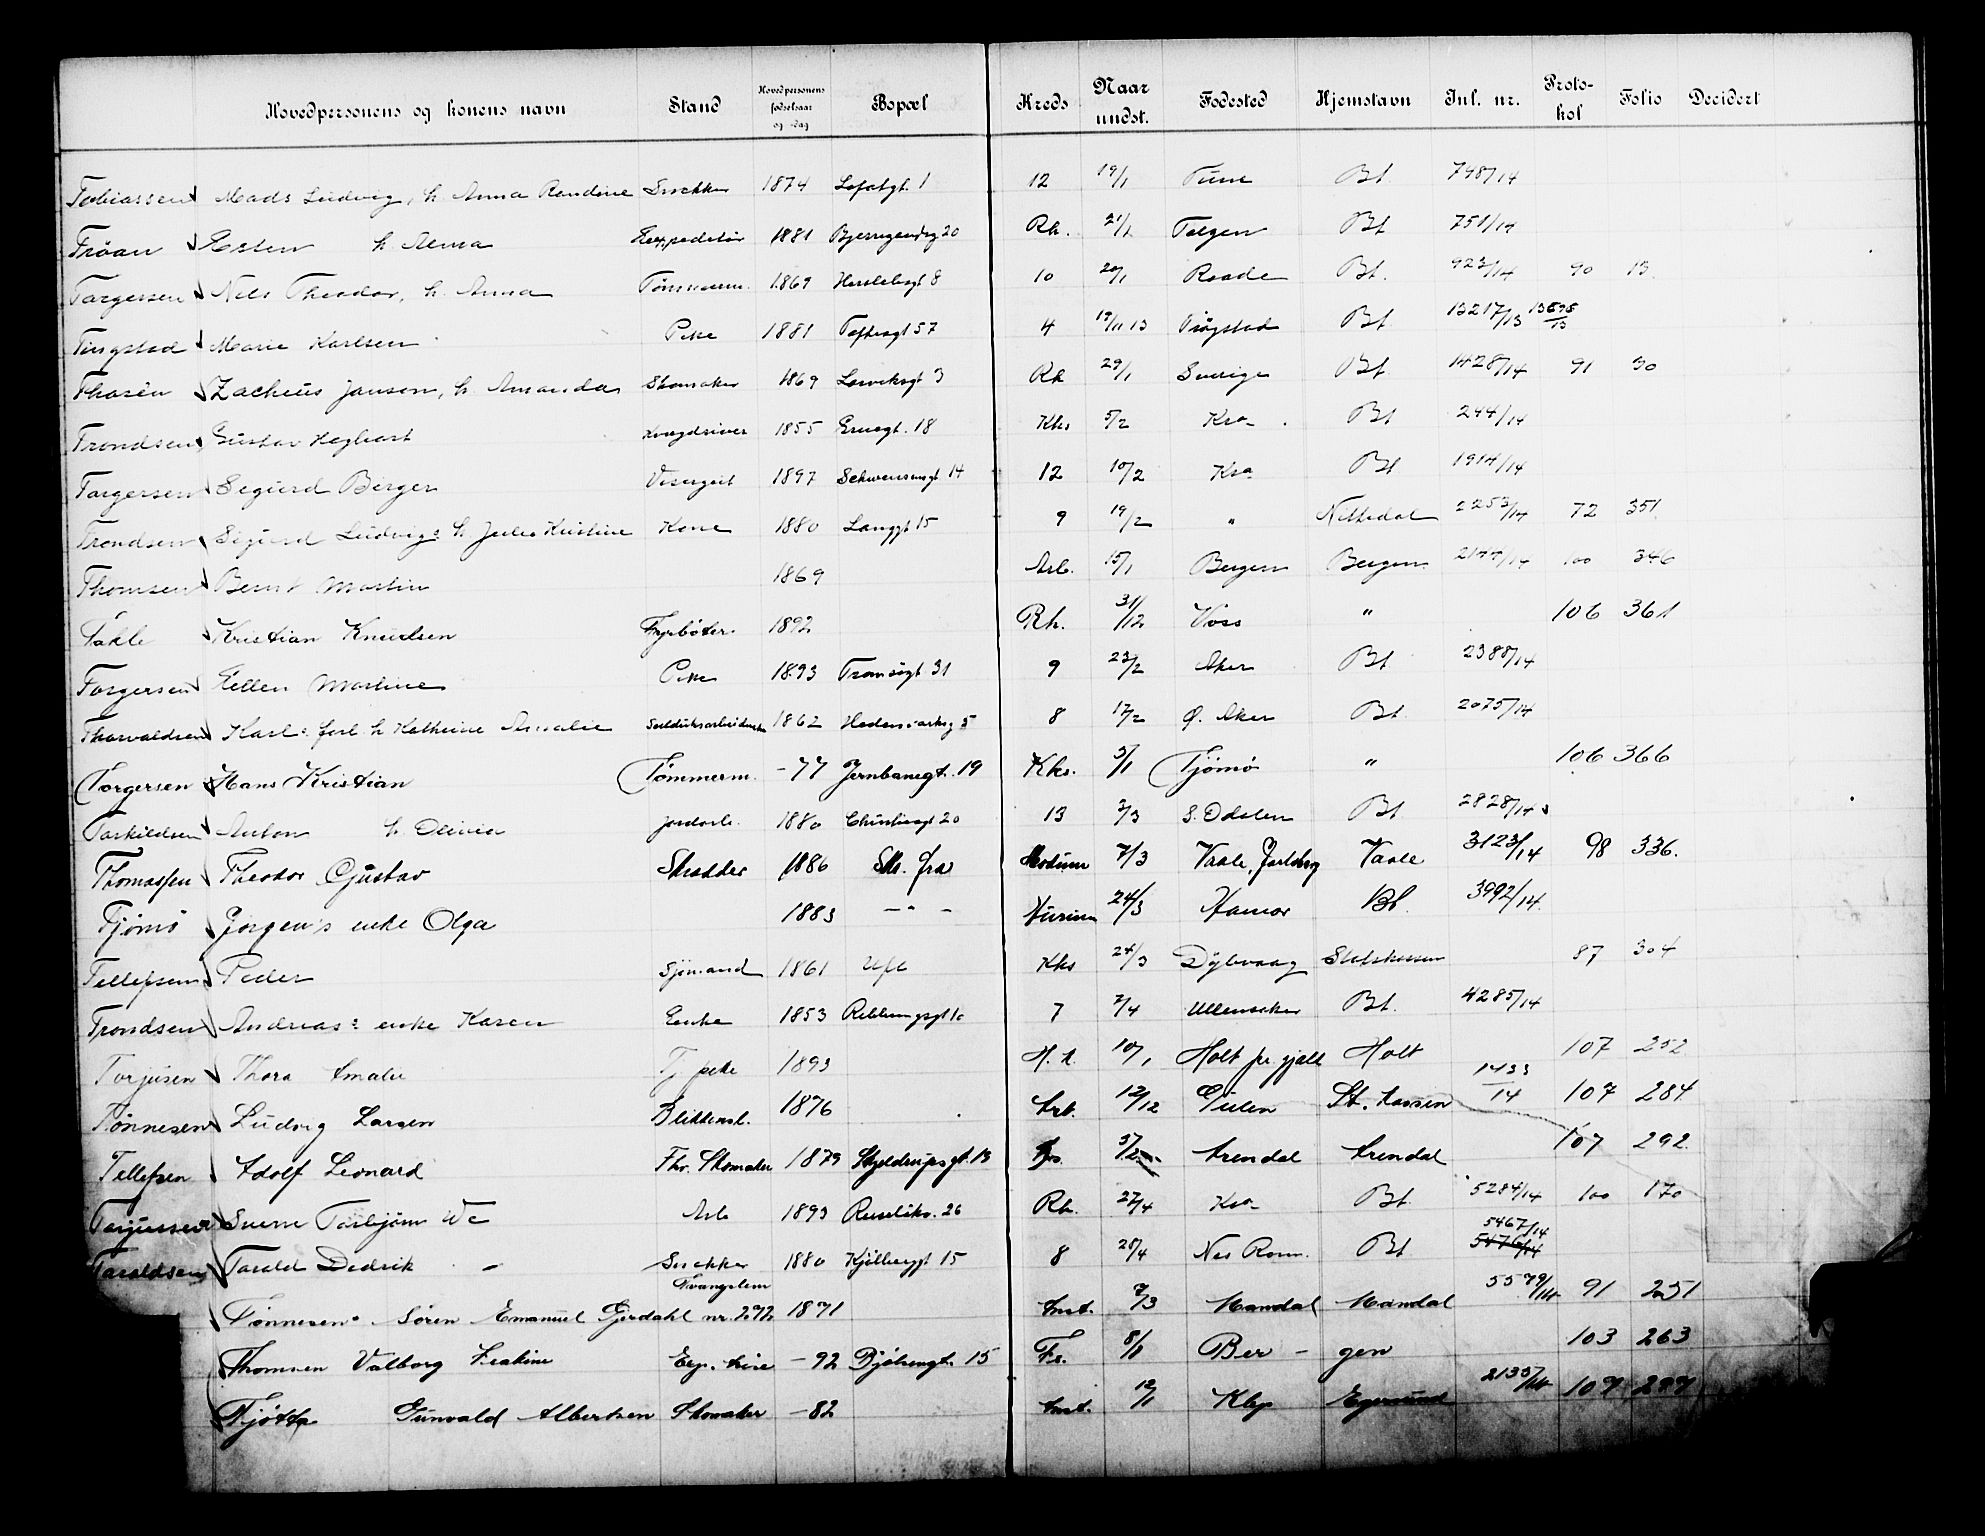 Hovedpersonens og konens navn Stand Hovedpersonens fødselsaar og -dag Bopæl Kreds Naar undst. Fødested Hjemstavn Inl. nr. Proto-kol Folio Decidert
Tobiassen Mads Ludvig, h. Anna Randine Snekker 1874 Lofotgt. 1 12 19/1 Tune Bt 748/14
Trøan Esten h. Anna Expeditør 1881 20 Rh. 21/1 Tolgen Bt 751/14
Torgersen Nils Theodor, h. Anna Tømmerm. 1869 Herslebsgt 8 10 20/1 Raade Bt. 923/14 90 13.
Tingstad Marie Karlsen Pike 1881 Toftesgt 57 4 19/11 13 Trøgstad Bt. 13217/13 13698/13
Thosén Zacheus Jansen, h. Amanda Skomaker 1869 Larviksgt 3 Rh 29/1 Sverige Bt. 1428/14 91 30
Trondsen Gustav Hagbart 1855 18 Khs 5/2 Kra. Bt 244/14
Torgersen Sigurd Berger Visergut 1897 Schwensensgt 14 12 10/2 Kra Bt 1914/14
Trondsen Sigurd Ludvigs h. Julie Kristine Kone 1880 Langgt 15 9 19/2 " Nittedal 2253/14 72 351
Thomsen Bernt Martin 1869 Arb. 15/1 Bergen Bergen 2177/14 100 346
Takle Kristian Knutsen Fyrbøter. 1892 Rh. 31/12 Voss " 106 361
Torgersen Hellen Martine Pike 1893 Tromsøgt 31 9 23/2 Aker Bt 2388/14
Thorvaldsen Karl's forl. h. Kathrine Amalie Seilduksarbeiderske 1862 Hedemarksg 5 8 17/2 Ø. Aker Bt. 2075/14
Torgersen Hans Kristian Tømmerm. -77 Jernbanegt. 19 Khs. 5/1 Tjømø " 106 366
Torkildsen Anton h. Olivia Jordarb. 1880 Christiesgt 20 13 3/3 S. Odalen Bt 2828/14
Thomassen Theodor Gustav Skrædder 1886 Skr. fra Modum 7/3 Vaale, Jarlsberg Vaale 3123/14 98 336.
Tjømø Jørgen's enke Olga 1883 - " - 24/3 Hamar Bt. 3992/14.
Tellefsen Peder Sjømand 1861 Ufl Khs 24/3 Dybvaag Stokskassen 87 304
Trondsen Andreas's enke Karen Enke 1853 7 7/4 Ullensaker Bt. 4285/14
Torjusen Thora Amalie Tj pike 1893 H. h. 10/1 Holt pr. gjæld Holt 107 252
Tønnesen Ludvig Larsen Blikkensl. 1876 Arb. 12/12 Gulen St. kassen 1433/14 107 284
Tellefsen Adolf Leonard Fhv. Skomaker 1879 Skjeldrupsgt. 13 5/2 Arendal Arendal 107 292.
Torjussen Sverre Torbjørn Arb 1893 Ruseløkv. 26 Rh. 27/4 Kra Bt. 5284/14 100 170
Taraldsen Tarald Didrik - Snekker 1880 Kjølberggt 15 8 28/4 Nes Rom. Bt 5467/14 5476/14
Tønnesen Søren Emanuel Gjerdahl nr. 2972 Tvangslem 1871 Anst. 7/3 Mandal Mandal 5579/14 91 251
Thomsen Valborg Exp. -92 Bjølsengt. 15 Fr. 8/1 Ber - gen 103 263
Tjøtta Gunvald Albertsen Skomaker -82 Anst. 12/1 Klep Egersund 2135/14 107 297